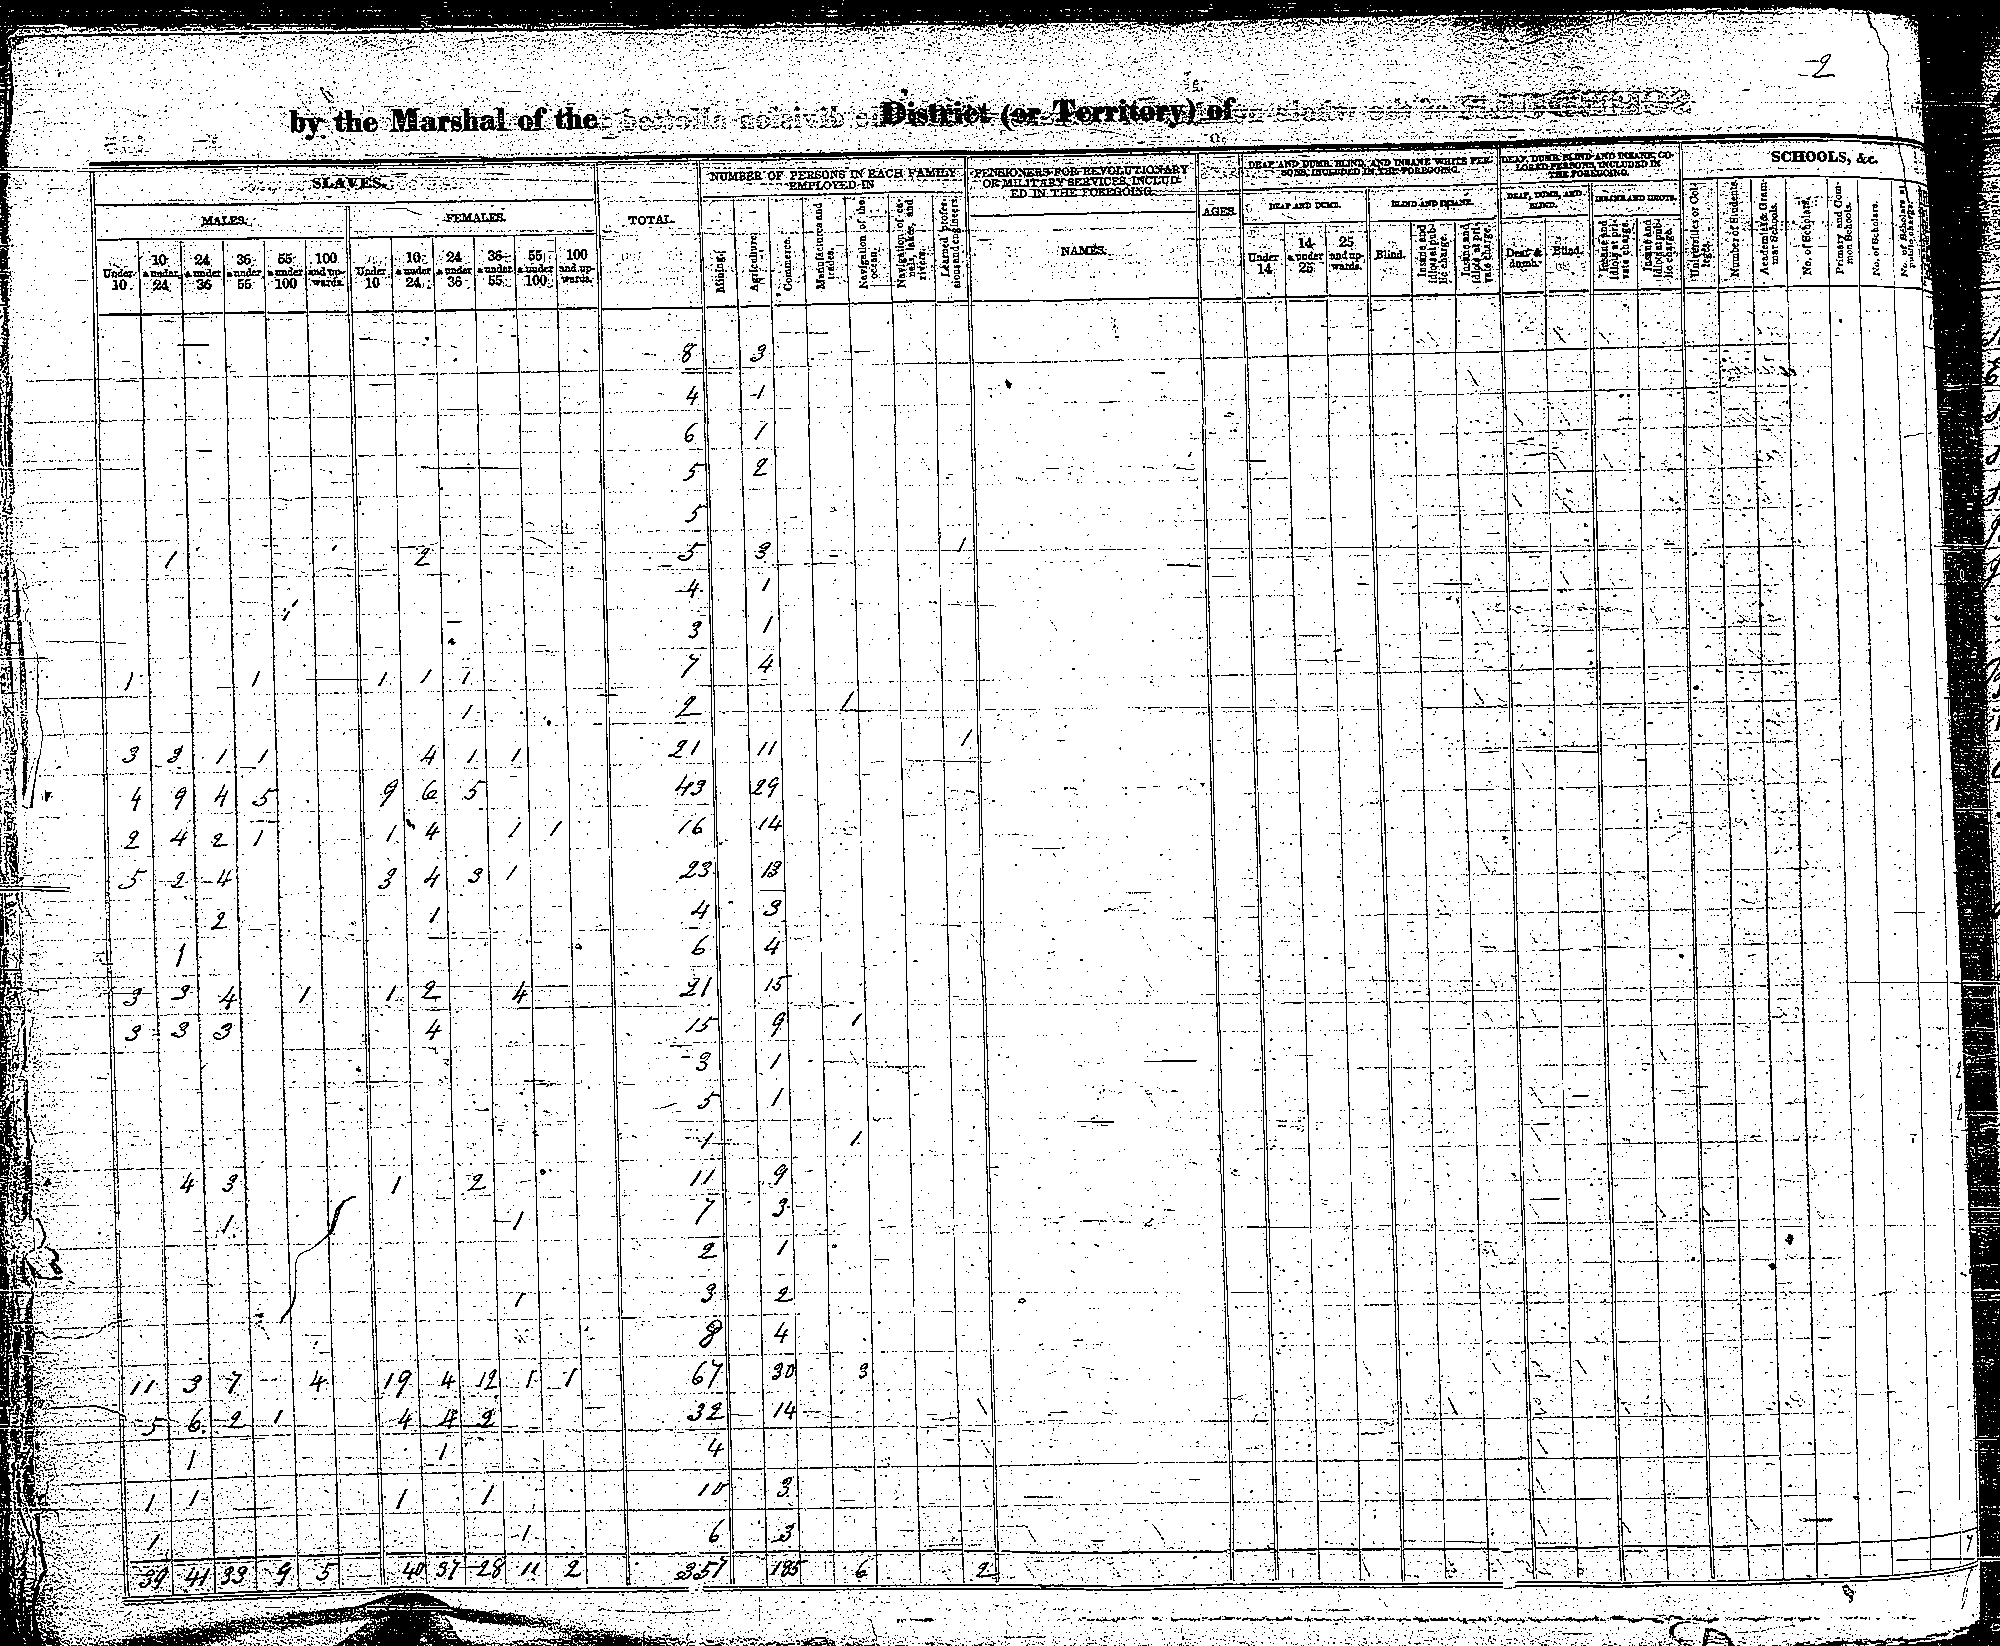 2
by the Marshal of the District (or Territory) of
SLAVES. TOTAL. NUMBER OF PERSONS IN EACH FAMILY EMPLOYED IN PENSIONERS FOR REVOLUTIONARY OR MILITARY SERVICES, INCLUDED IN THE FOREGOING. AGES. DEAF AND DUMB, BLIND, AND INSANE WHITE PERSONS, INCLUDED IN THE FOREGOING. DEAF, DUMB, BLIND AND INSANE COLORED PERSONS, INCLUDED IN THE FOREGOING. SCHOOLS, &c.
MALES. FEMALES. NAMES. DEAF AND DUMB. BLIND AND INSANE. DEAF, DUMB, AND BLIND. INSANE AND IDIOTS.
Under 10 10 & under 24 24 & under 36 36 & under 55 55 & under 100 100 and upwards. Under 10 10 & under 24 24 & under 36 36 & under 55 55 & under 100 100 and upwards. Mining. Agriculture. Commerce. Manufactures and trades. Navigation of the ocean. Navigation of canals, lakes, and rivers. Learned professions and engineers. Under 14. 14 & under 25. 25 and upwards. Blind. Insane and idiots at public charge. Insane and idiots at private charge. Deaf & dumb. Blind. Insane and idiots at private charge. Insane and idiots at public charge. Universities or Colleges. Number of Students. Academies & Grammar Schools. No. of Scholars. Primary and Common Schools. No. of Scholars. No. of Scholars at public charge.
8 3
4 1
6 1
5 2
5
1 2 5 3 1
4 1
3 1
1 1 1 1 1 7 4
1 2 1
3 3 1 1 4 1 1 21 11 1
4 9 4 5 9 6 5 43 29
2 4 2 1 1 4 1 1 16 14
5 2 4 3 4 3 1 23 13
2 1 4 3
1 6 4
3 3 4 1 1 2 4 21 15
3 3 3 4 15 9 1
3 1
5 1
1 1
4 3 1 2 11 9
1 1 7 3
2 1
1 3 2
8 4
11 3 7 4 19 4 12 1 1 67 30 3
5 6 2 1 4 4 2 32 14
1 1 4
1 1 1 1 10 3
1 1 6 3
39 41 33 9 5 40 37 28 11 2 357 185 6 2